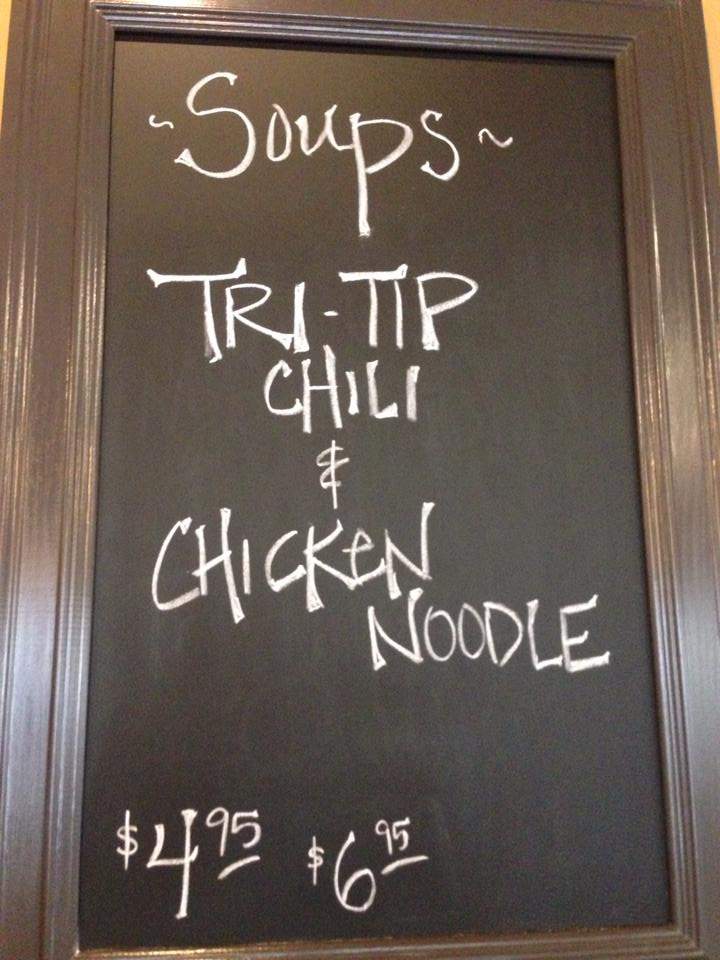 ~Soups~
TRI-TIP
CHILI
&
CHICKEN
NOODLE
$4.95 $6.95